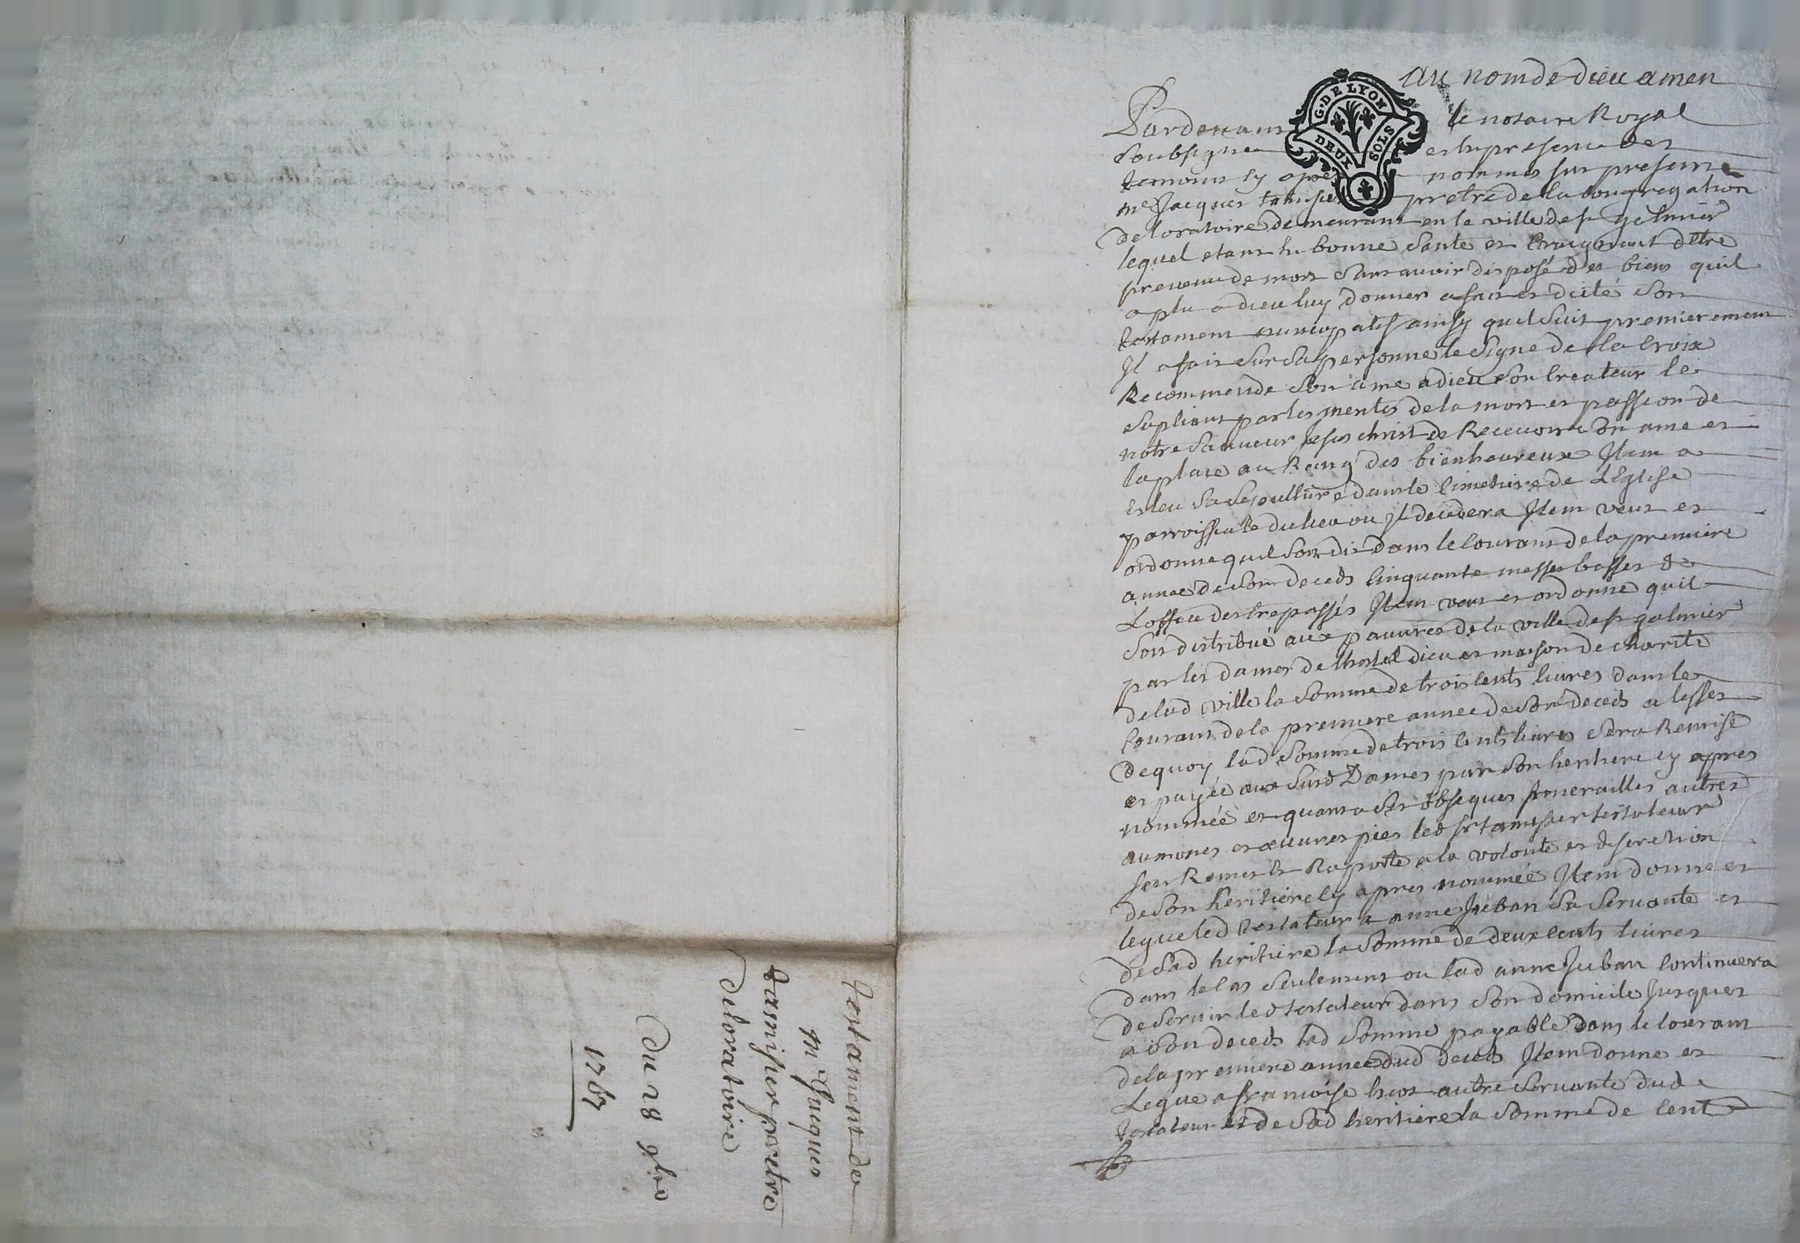 au nom de dieu amen
Pardevant le notaire Royal
soubsigné et en presence des
temoins cy apres nommés fut presente
me Jacques tamisier pretre de la Congregation
de loratoire demeurant en la ville de st galmier
lequel etant en bonne santé et Craignant detre
prevenu de mort sans avoir disposé des biens quil
a plu a dieu luy donner a fait et dicté son
testament nuncupatif ainsy quil suit premierement
Il a fait sur sa personne le signe de la Croix
Recommende son ame a dieu son Createur le
supliant par les merites de la mort et passion de
notre sauveur Jesus christ de Recevoir son ame et
la place au Rang des bienheureux Item a
esleu sa sepulture dans le Cimetiere de LEglise
parroissialle du lieu ou Il decedera Item veut et
ordonne quil soit dit dans le Courant de la premiere
année de son deceds Cinquante messes basses de
Loffice des trepassés Item veut et ordonne quil
soit distribué aux pauvres de la ville de st galmier
par les dames de lhostel dieu et maison de charité
de lad ville la somme de trois Cents livres dans le
Courant de la premiere année de son deceds a leffet
de quoy lad somme de trois Cents livres sera Remise
et payée aux susd Dames par son heritiere cy apres
nommée et quant a ses obseques funerailles autres
aumones et œuvres pies led sr tamisier testateur
sen Remet et Raporte a la volonté et discretion
de son heritiere cy apres nommée Item donne et
legue led testateur a anne Juban sa servante et
de sad heritiere la somme de deux cents livres
dans le Cas seulement ou lad anne Juban Continuera
de servir led testateur dans son domicile Jusques
a son deceds lad somme payable dans le Courant
de la premiere année dud deceds Item donne et
Legue a françoise autre servante dud
testateur et de sad heritiere la somme de Cent
testament de
me Jacques
tamisier pretre
de loratoire
du 28 9bre
1767
G. DE LYON
DEUX SOLS